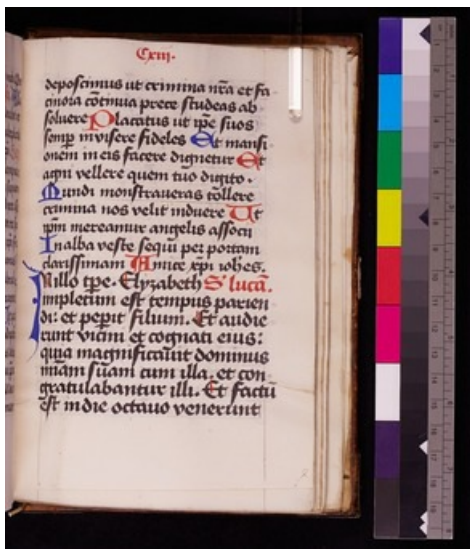 Cxiii.
deposcimus ut crimina nr̄a et fa
cinora cōtinua prece studeas ab
soluere Placatus ut ip̄e suos
semp̄ inuisere fideles Et mansi
onem in eis facere dignetur Et
agni vellere quem tuo digito.
Mundi monstraueras tollere
crimina nos velit induere Ut
ip̄m mereamur angelis associi
In alba veste sequi per portam
clarissimam Amice xp̄i ioh̄es.
In illo tp̄e. Elyzabeth S' lucā.
impletum est tempus parien
di: et peperit filium. Et audie
runt vicini et cognati eius:
quia magnificauit dominus
miām suam cum illa. et con
gratulabantur illi. Et factū
est in die octauo venerunt